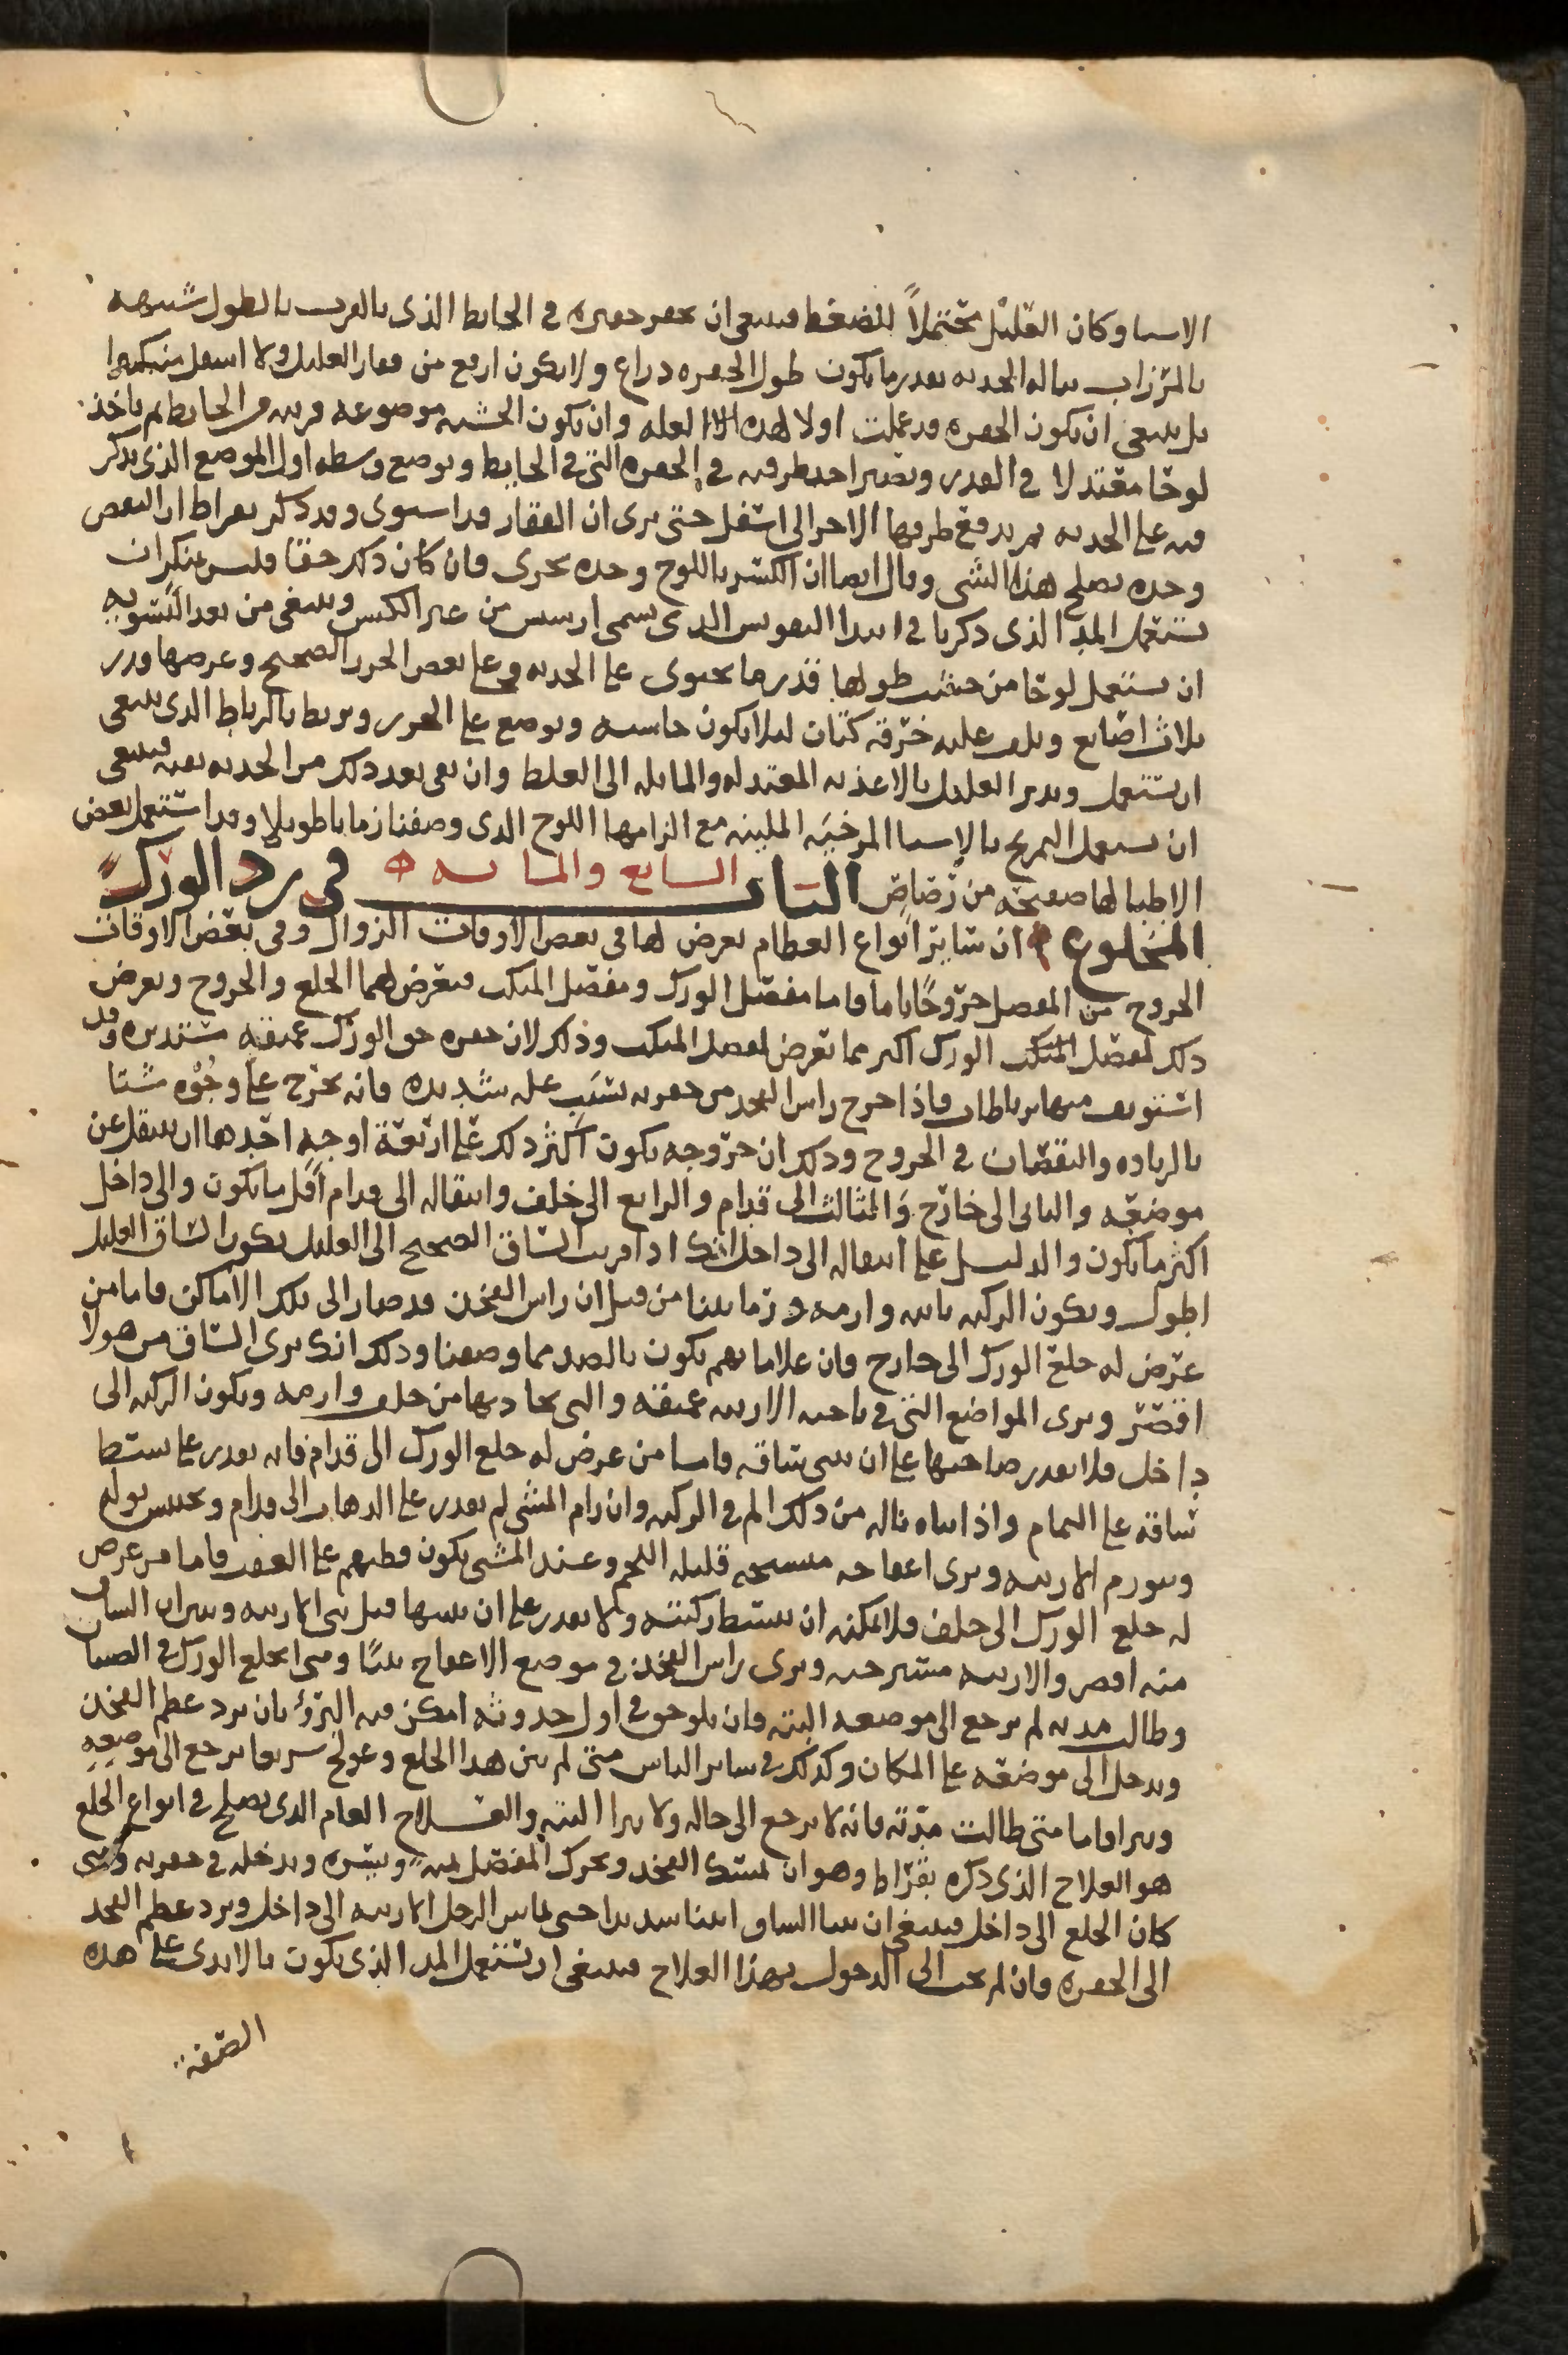 الاسيا وكان العليل محتملاً للضغط فينبغى ان يحفر حفيره فى الحايط الذى بالقرب بالطول شبيهه
بالمرزاب قباله الحدبه بقدر ما يكون طول الحفره دراع ولا يكون ارفع من فقار العليل ولا اسفل منه كثيرا
بل ينبغى ان يكون الحفره قد عملت اولا لهذه العله وان يكون الخشبه موضوعه قريبه من الحايط ثم ياخذ
لوحًا معتدلا فى القدر ويصير احد طرفيه فى الحفره التى فى الحايط ويوضع وسطه او المواضع الذى يذكر
فيه على الحدبه ثم يدفع طرفها الاخر الى اسفل حتى يرى ان الفقار قد استوى وقد ذكر بقراط ان التقعص
وحده يصلح هذا الشى وقال ايضا ان الكبس باللوح وحده يجزى فان كان ذلك حقًا فليس بمنكر ان
يستعمل المد الذى ذكرنا فى ابتدا التقويس الذى يسمى ارسس من غير الكبس وينبغى من بعد التسويه
ان يستعمل لوحًا من خشب طولها قدر ما يحتوى على الحدبه وعلى بعض الخرز الصحيح وعرضها قدر
ثلاث اصابع ويلف عليه خرقه كتان ليلا يكون جاسيه ويوضع على الخرز ويربط بالرباط الذى ينبغى
ان يستعمل ويدبر العليل بالاغذيه المعتدله والمايله الى الغلظ وان بقى بعد ذلك من الحدبه بقيه فينبغى
ان يستعمل التمريخ بالاشيا المرخيه الملينه مع الزامها اللوح الذى وصفنا زمانا طويلا وقد استعمل بعض
الاطبا لها صفيحه من رصاص الباب السابع والمايه فى رد الورك
المخلوع ان ساير انواع العظام يعرض لها فى بعض الاوقات الزوال وفى بعض الاوقات
الخروج من المفصل خروجًا تاما فاما مفصل الورك ومفصل المنكب فيعرض لهما الخلع والخروج ويعرض
ذلك لمفصل المنكب الورك اكثر مما يعرض لمفصل المنكب وذلك لان حفره حق الورك عميقه مستديره وقد
استوثق منها برباطات فاذا خرج راس الفخذ من حفرته بسبب عله شديده فانه يخرج على وجوه شتا
بالزياده والنقصان فى الخروج وذلك ان خروجه يكون اكثر ذلك على اربعة اوجه احدها ان ينتقل عن
موضعه والثانى الى خارج والثالث الى قدام والرابع الى خلف وانتقاله الى قدام اقل ما يكون والى داخل
اكثر ما يكون والدليل على انتقاله الى داخل انك اذا قربت الساق الصحيح الى العليل يكون الساق العليل
اطول ويكون الركبه ناتيه وارمه وربما بلينا من قبل ان راس الفخذ قد صار الى تلك الاماكن فاما من
عرض له خلع الورك الى خارج فان علاماتهم يكون بالضد مما وصفنا وذلك انك ترى الساق من هولا
اقصر ويرى المواضع التى فى ناحيه الاربيه عميقه والتى تحاذيها من خلف وارمه ويكون الركبه الى
داخل فلا يقدر صاحبها على ان يثنى ساقه فاما من عرض له خلع الورك الى قدام فانه يقدر على بسط
ساقه على التمام واذا ثناه ناله من ذلك الم فى الركبه وان رام المشى لم يقدر على الذهاب الى قدام ويحبس بوله
ويتورم الاربيه ويرى اعفاجه منشنجه قليله اللحم وعند المشى يكون وطيهم على العقب فاما من عرض
له خلع الورك الى خلف فلا يمكنه ان يبسط ركبته ولا يقدر على ان يثنيها قبل ثنى الاربيه ويرى ان الساق
منه اقصر والاربيه مسترخيه ويرى راس الفخذ فى موضع الاعفاج بينًا ومتى انخلع الورك فى الصبيان
وطالت مدته لم يرجع الى موضعه البته فان تلوحق فى اول حدوثه امكن فيه البرؤ بان يرد عظم الفخذ
ويدخل الى موضعه على المكان وكذلك فى ساير الناس متى لم يزمن هذا الخلع وعولج سريعا يرجع الى موضعه
ويبرا فاما متى طالت مدته فانه لا يرجع الى حاله ولا يبرا البته والعـلاج العام الذى يصلح فى انواع الخلع
هو العلاج الذى ذكره بقراط وهو ان يمسك الفخذ ويحرك المفصل يمنه ويسره ويدخله فى حفرته ومتى
كان الخلع الى داخل فينبغى ان يثنا الساق اثنا شديدا حتى يماس الرجل الاربيه الى داخل ويرد عظم الفخذ
الى الحفره فان لم يجب الى الدخول بهذا العلاج فينبغى ان يستعمل المد الذى يكون بالايدى على هذه
الصفه